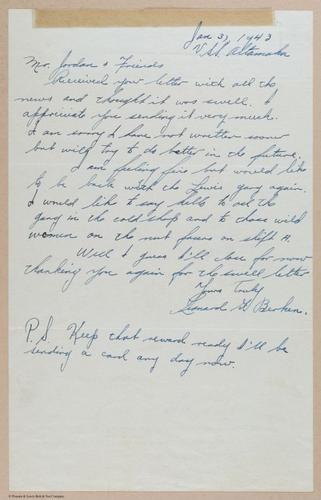 Jan 31, 1943
U.S.S. Altamaha
Mr. Jordan & Friends
Received your letter with all the
news and thought it was swell. I
appriciate you sending it very much.
I am sorry I have not written sooner
but will try to do better in the future.
I am feeling fine but would like
to be back with the Lewis gang again.
I would like to say hello to all the
gang in the cold shop and to those wild
women on the nut facers on shift A.
Well I guess I'll close for now
thanking you again for the swell letter
Yours Truly
Leonard H Berken.
P.S. Keep that reward ready I'll be
sending a card any day now.